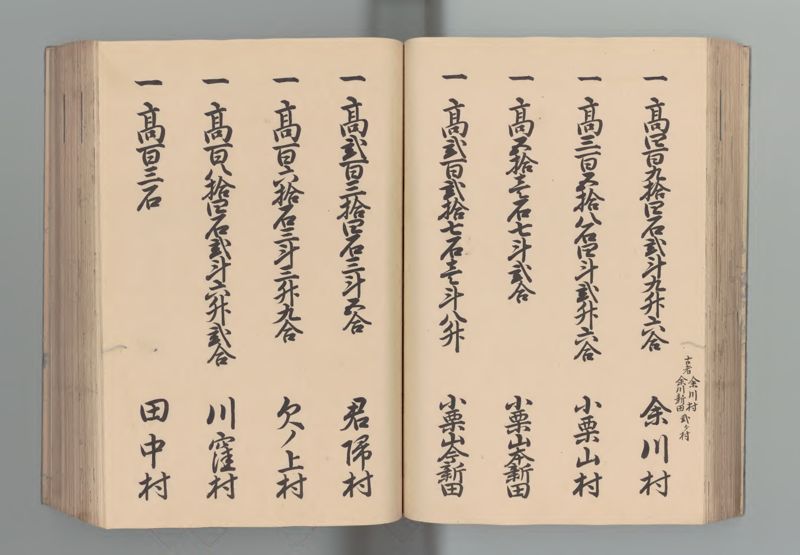 一 高四百九拾四石弐斗九升六合 余川村
古者 余川村
余川新田 弐ヶ村
一 高三百五拾八石四斗弐升六合 小栗山村
一 高五拾壱石七斗弐合 小栗山本新田
一 高弐百弐拾七石壱斗八升 小栗山今新田
一 高弐百三拾四石三斗五合 君帰村
一 高百六拾石三斗三升九合 欠ノ上村
一 高百八拾四石弐斗六升弐合 川窪村
一 高百三石 田中村